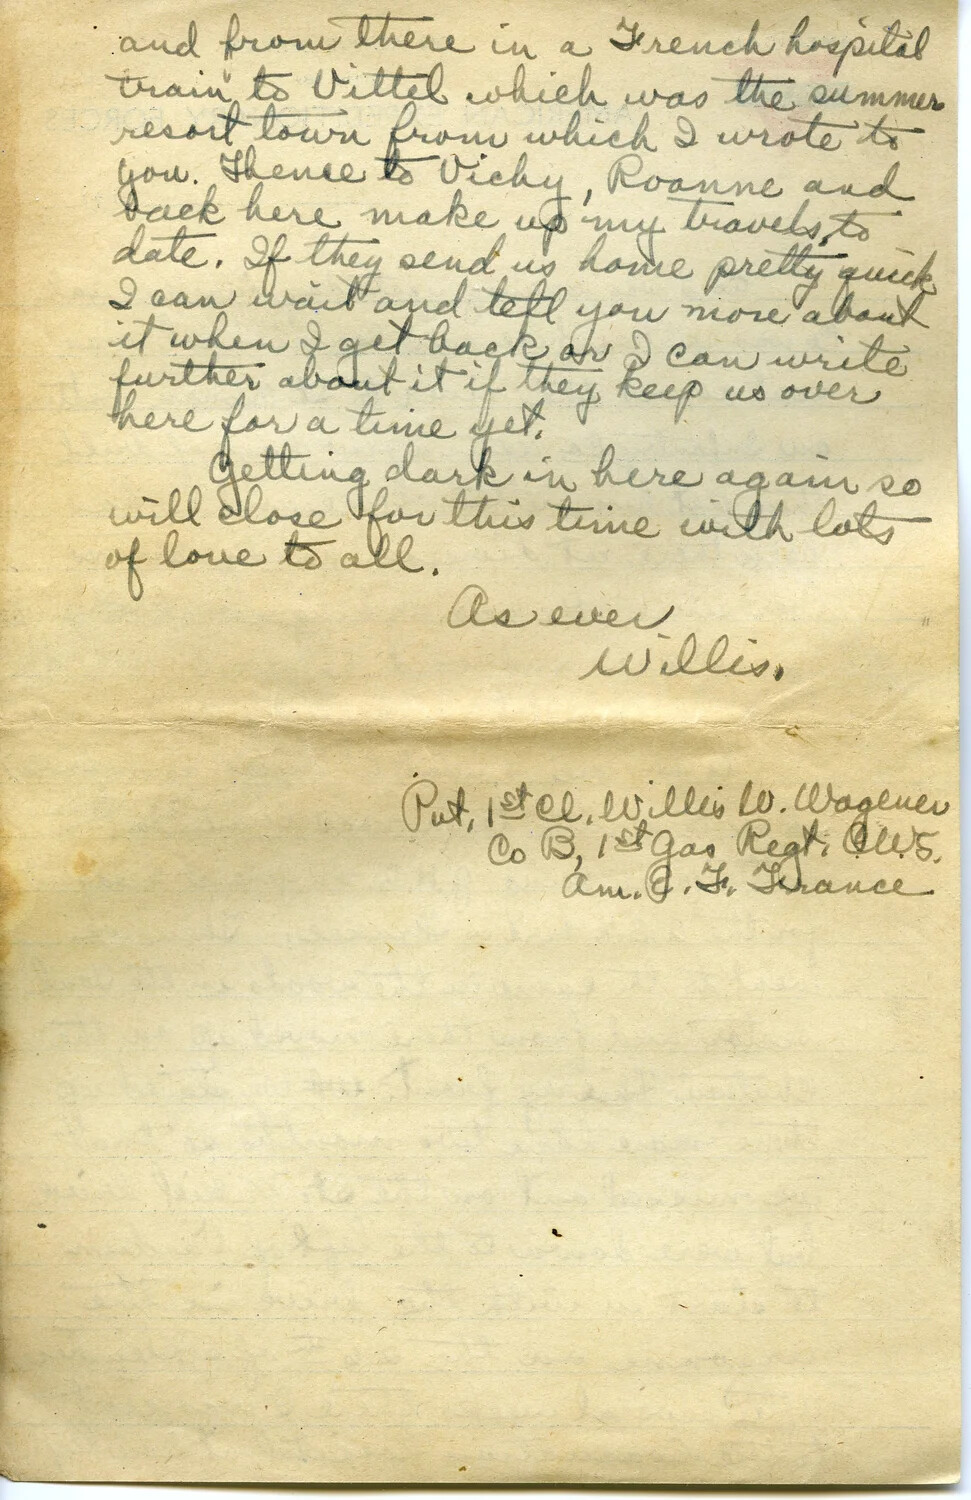 and from there in a French hospital
train to Vittel which was the summer
resort town from which I wrote to
you. Thence to Vichy, Roanne and
back here make up my travels, to
date. If they send us home pretty quick
I can wait and tell you more about
it when I get back or I can write
further about it if they keep us over
here for a time yet.
Getting dark in here again so
will close for this time with lots
of love to all.
As ever
Willis.
Pvt, 1st Cl. Willis W. Wagener
Co B, 1st Gas Regt. C.W.S.
Am. E. F. France